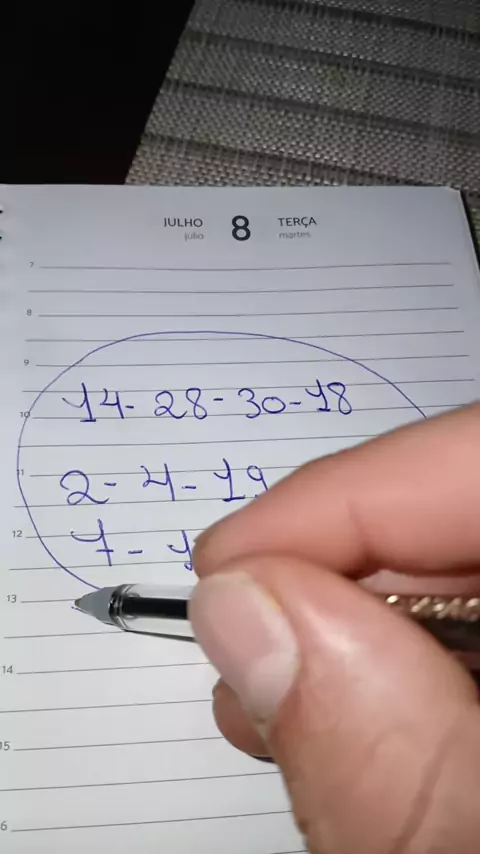 JULHO 8 TERÇA
julio martes
7
8
9
10 14 - 28 - 30 - 18
11 2 - 4 - 19
12 7 -
13
14
15